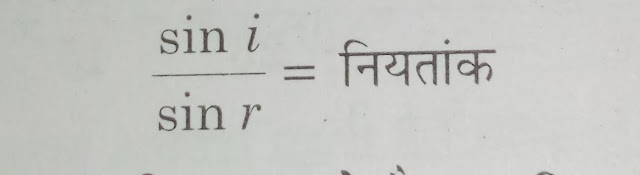 sin i
sin r = नियतांक